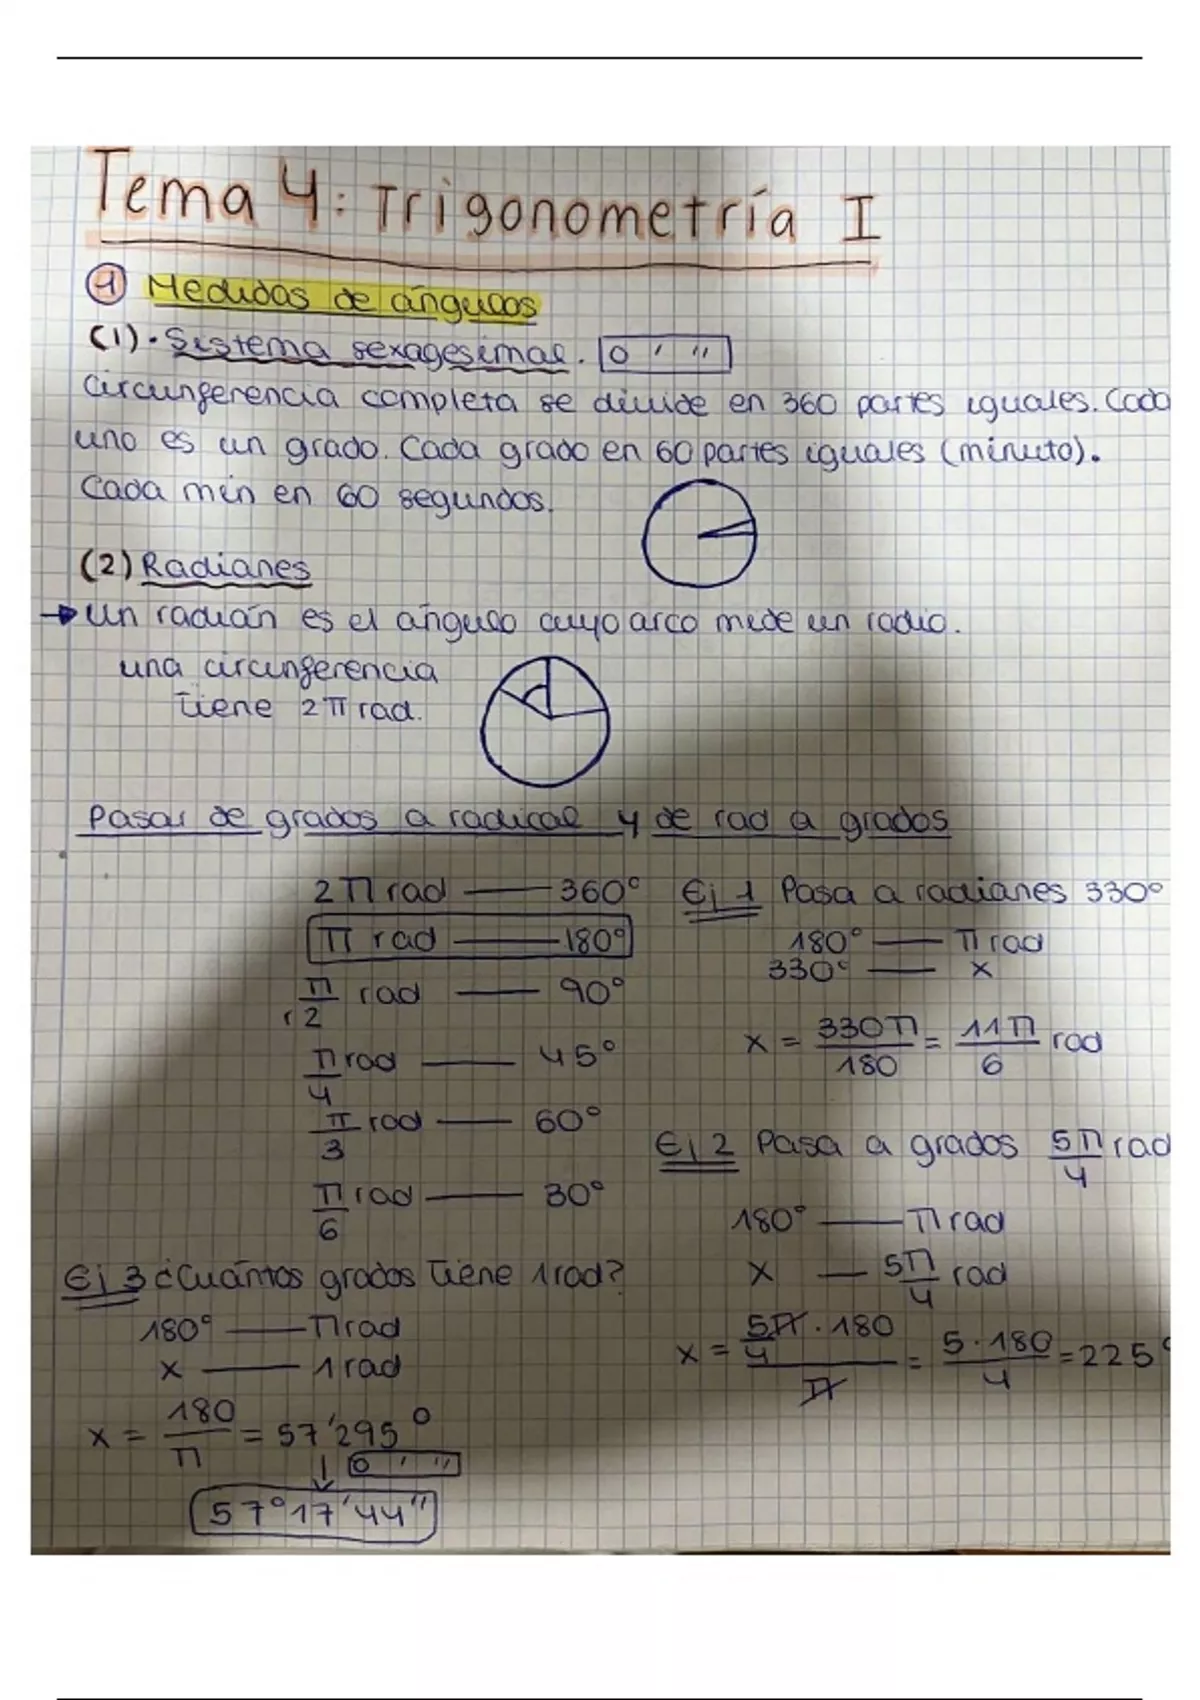 Tema 4: Trigonometría I
1 Medidas de ángulos
(1). Sistema sexagesimal. o ' ''
Circunferencia completa se divide en 360 partes iguales. Cada
uno es un grado. Cada grado en 60 partes iguales (minuto).
Cada min en 60 segundos.
(2) Radianes
→ Un radián es el ángulo cuyo arco mide un radio.
una circunferencia
tiene 2π rad.
Pasar de grados a radical y de rad a grados
2π rad — 360°
π rad — 180°
π/2 rad — 90°
π/4 rad — 45°
π/3 rad — 60°
π/6 rad — 30°
Ej 1 Pasa a radianes 330°
180° — π rad
330° — x
x = 330π/180 = 11π/6 rad
Ej 2 Pasa a grados 5π/4 rad
180° — π rad
x — 5π/4 rad
x = 5π/4 · 180 / π = 5 · 180 / 4 = 225°
Ej 3 ¿Cuántos grados tiene 1 rad?
180° — π rad
x — 1 rad
x = 180/π = 57'295°
↓ o ' ''
57° 17' 44''